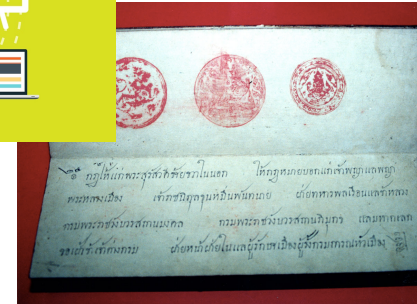 ๒๕ กฎให้แก่พระสุรัสวดีซ้ายขวาในนอก ให้กฎหมายบอกแก่เจ้าพญาแลพญา
พระหลวงเมือง เจ้าราชนิกุลขุนหมื่นพันทนาย ฝ่ายทหารพลเรือนแลข้าหลวง
กรมพระราชวังบวรสถานมงคล กรมพระราชวังบวรสถานภิมุกร แลมหาดเลก
ขอเฝ้าข้าเจ้าต่างกรม ฝ่ายหน้าฝ่ายในแลผู้รักษาเมืองผู้รั้งกรมการหัวเมือง